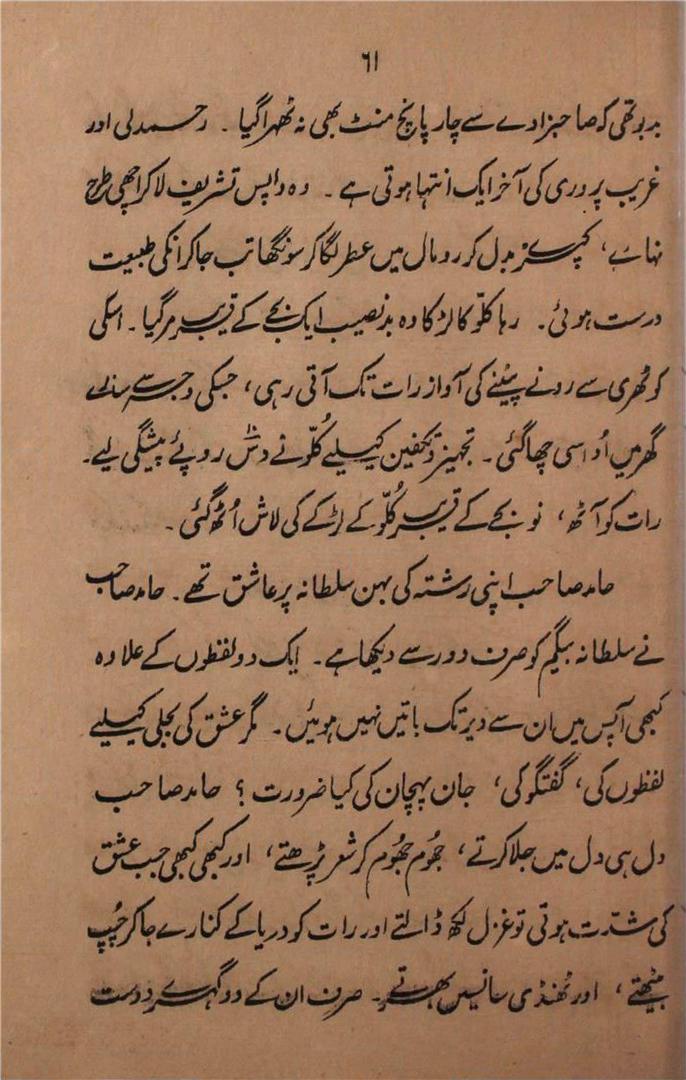 ۶۱
بدبو تھی کہ صاحبزادے سے چار پانچ منٹ بھی نہ ٹھہرا گیا ۔ رحمدلی اور
غریب پروری کی آخر ایک انتہا ہوتی ہے ۔ وہ واپس تشریف لا کر اچھی طرح
نہائے، کپڑے بدل کر رومال میں عطر لگا کر سونگھا تب جا کر انکی طبیعت
درست ہوئی ۔ رہا کلّو کا لڑکا وہ بدنصیب ایک بجے کے قریب مر گیا ۔ اسکی
کوٹھری سے رونے پیٹنے کی آواز رات تک آتی رہی، جسکی وجہ سے سارے
گھر میں اُداسی چھا گئی ۔ تجہیز و تکفین کیلیے کُلّو نے دس روپئے پیشگی لیے ۔
رات کو آٹھ، نو بجے کے قریب کُلّو کے لڑکے کی لاش اُٹھ گئی ۔
حامد صاحب اپنی رشتہ کی بہن سلطانہ پر عاشق تھے ۔ حامد صاحب
نے سلطانہ بیگم کو صرف دور سے دیکھا ہے ۔ ایک دو لفظوں کے علاوہ
کبھی آپس میں ان سے دیر تک باتیں نہیں ہوئیں ۔ مگر عشق کی بجلی کیلیے
لفظوں کی، گفتگو کی، جان پہچان کی کیا ضرورت؟ حامد صاحب
دل ہی دل میں جلا کرتے، جھُوم جھُوم کر شعر پڑھتے، اور کبھی کبھی جب عشق
کی شدّت ہوتی تو غزل لکھ ڈالتے اور رات کو دریا کے کنارے جا کر چُپ
بیٹھتے، اور ٹھنڈی سانسیں بھرتے ۔ صرف ان کے دو گہرے دوست